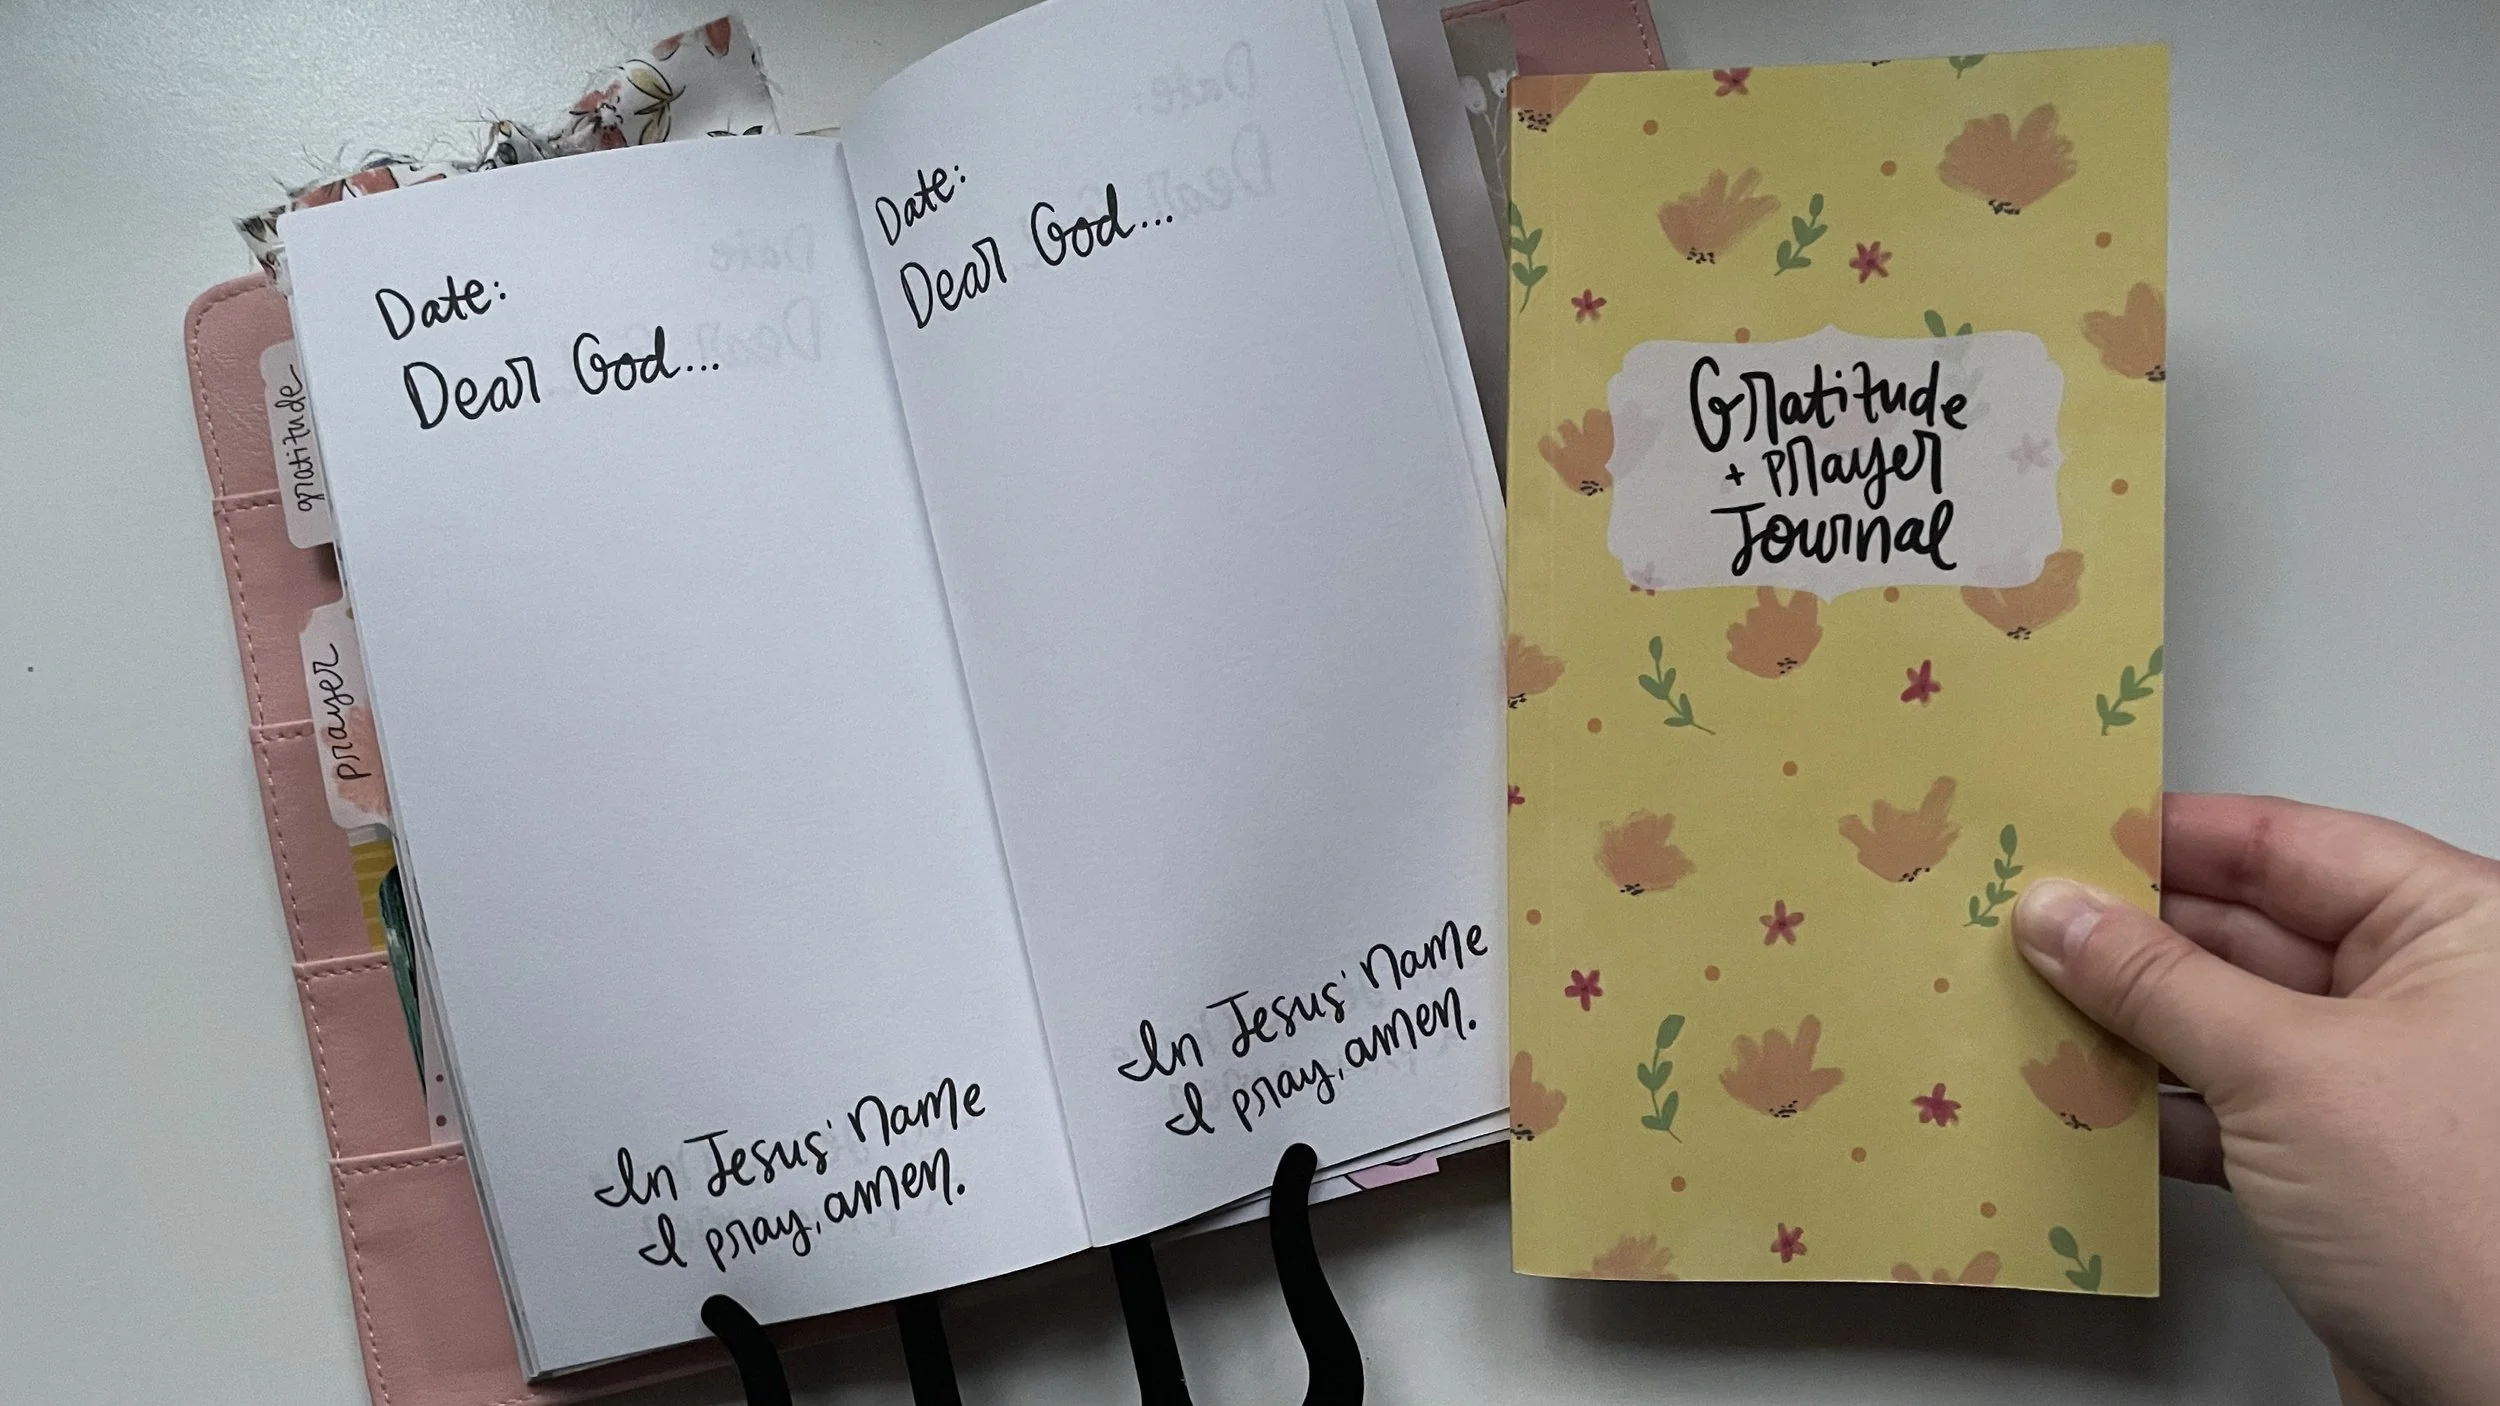 gratitude
prayer
Date:
Dear God...
In Jesus' name
I pray, amen.
Date:
Dear God...
In Jesus' name
I pray, amen.
Gratitude
+ prayer
Journal